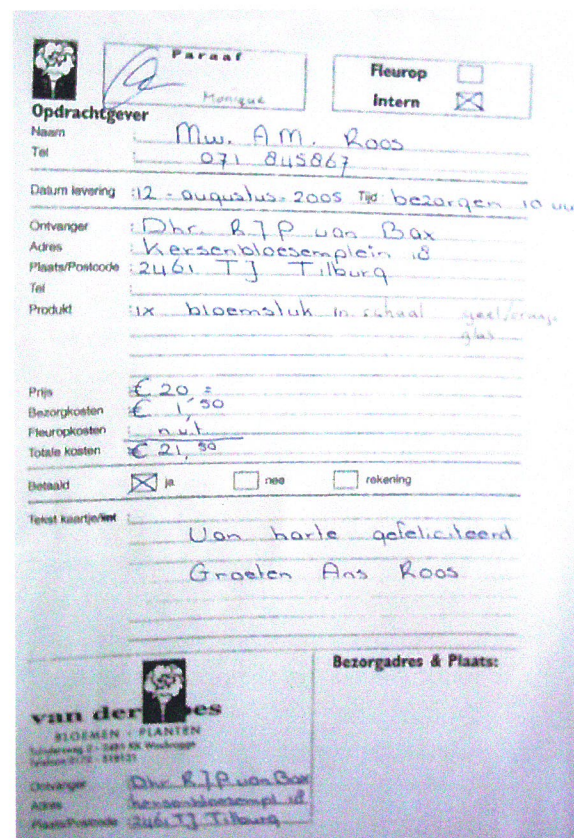 Paraaf
Monique
Fleurop
Intern
Opdrachtgever
Naam : Mw. A.M. Roos
Tel : 071 845867
Datum levering : 12 - augustus - 2005 Tijd bezorgen 10 uu
Ontvanger : Dhr. R J P van Bax
Adres : Kersenbloesemplein 18
Plaats/Postcode : 2461 TJ Tilburg
Tel :
Produkt : 1x bloemstuk in schaal geel/oranje
glas
Prijs : € 20 =
Bezorgkosten : € 1,50
Fleuropkosten : n.v.t.
Totale kosten : € 21,50
Betaald ja nee rekening
Tekst kaartje/lint :
Van harte gefeliciteerd
Groeten Ans Roos
Bezorgadres & Plaats:
van der es
BLOEMEN - PLANTEN
2 - 2481 KK Woubrugge
Telefoon 0172 -
Ontvanger : Dhr. R J P van Bax
Adres : kersenbloesempl 18
Plaats/Postcode : 2461 TJ Tilburg